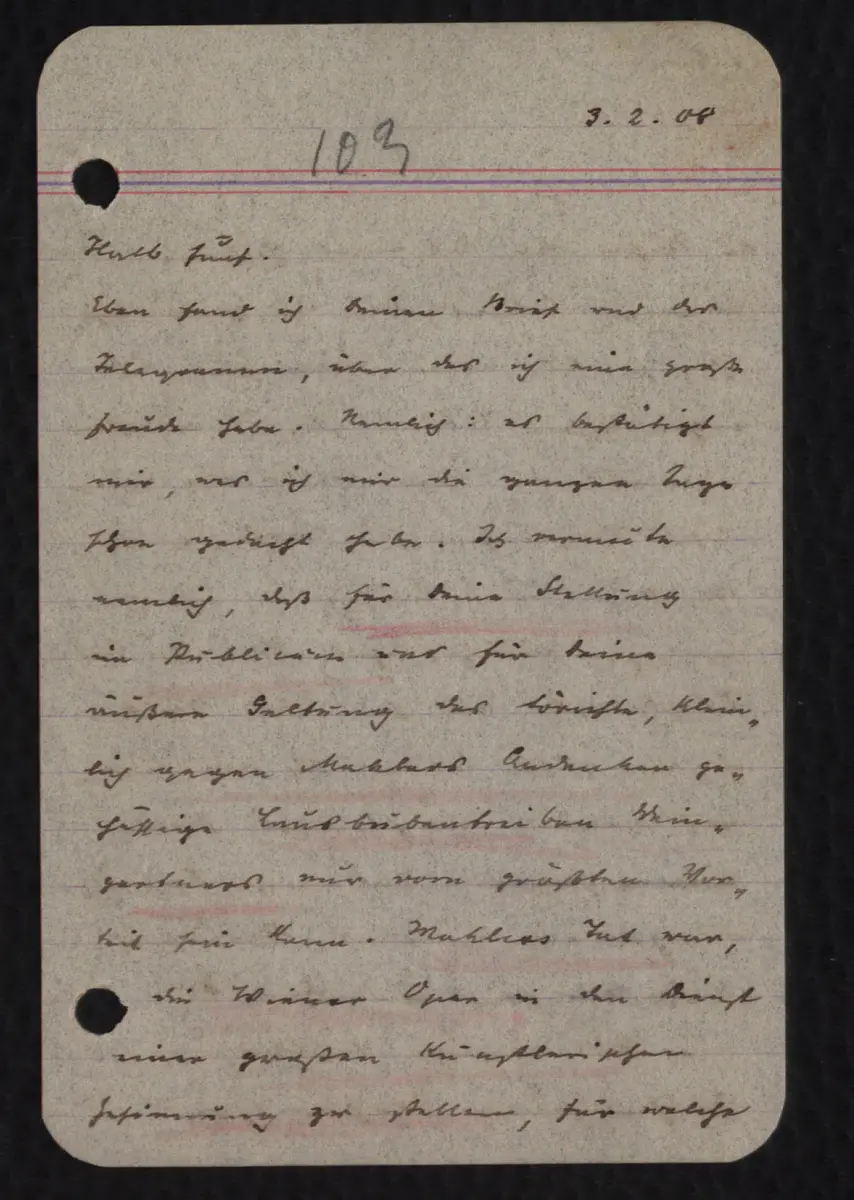 3. 2. 08
103
Halb fünf.
Eben fand ich Deinen Brief und das
Telegramm, über das ich eine große
Freude habe. Nemlich: es bestätigt
mir, was ich mir die ganzen Tage
schon gedacht habe. Ich vermute
nemlich, daß für Deine Stellung
im Publicum und für Deine
äußere Geltung das törichte, klein„
lich gegen Mahlers Andenken ge„
hässige Lausbubentreiben Wein„
gartners nur vom größten Vor„
teil sein kann. Mahlers Tat war,
die Wiener Oper in den Dienst
einer großen künstlerischen
Gesinnung zu stellen, für welche